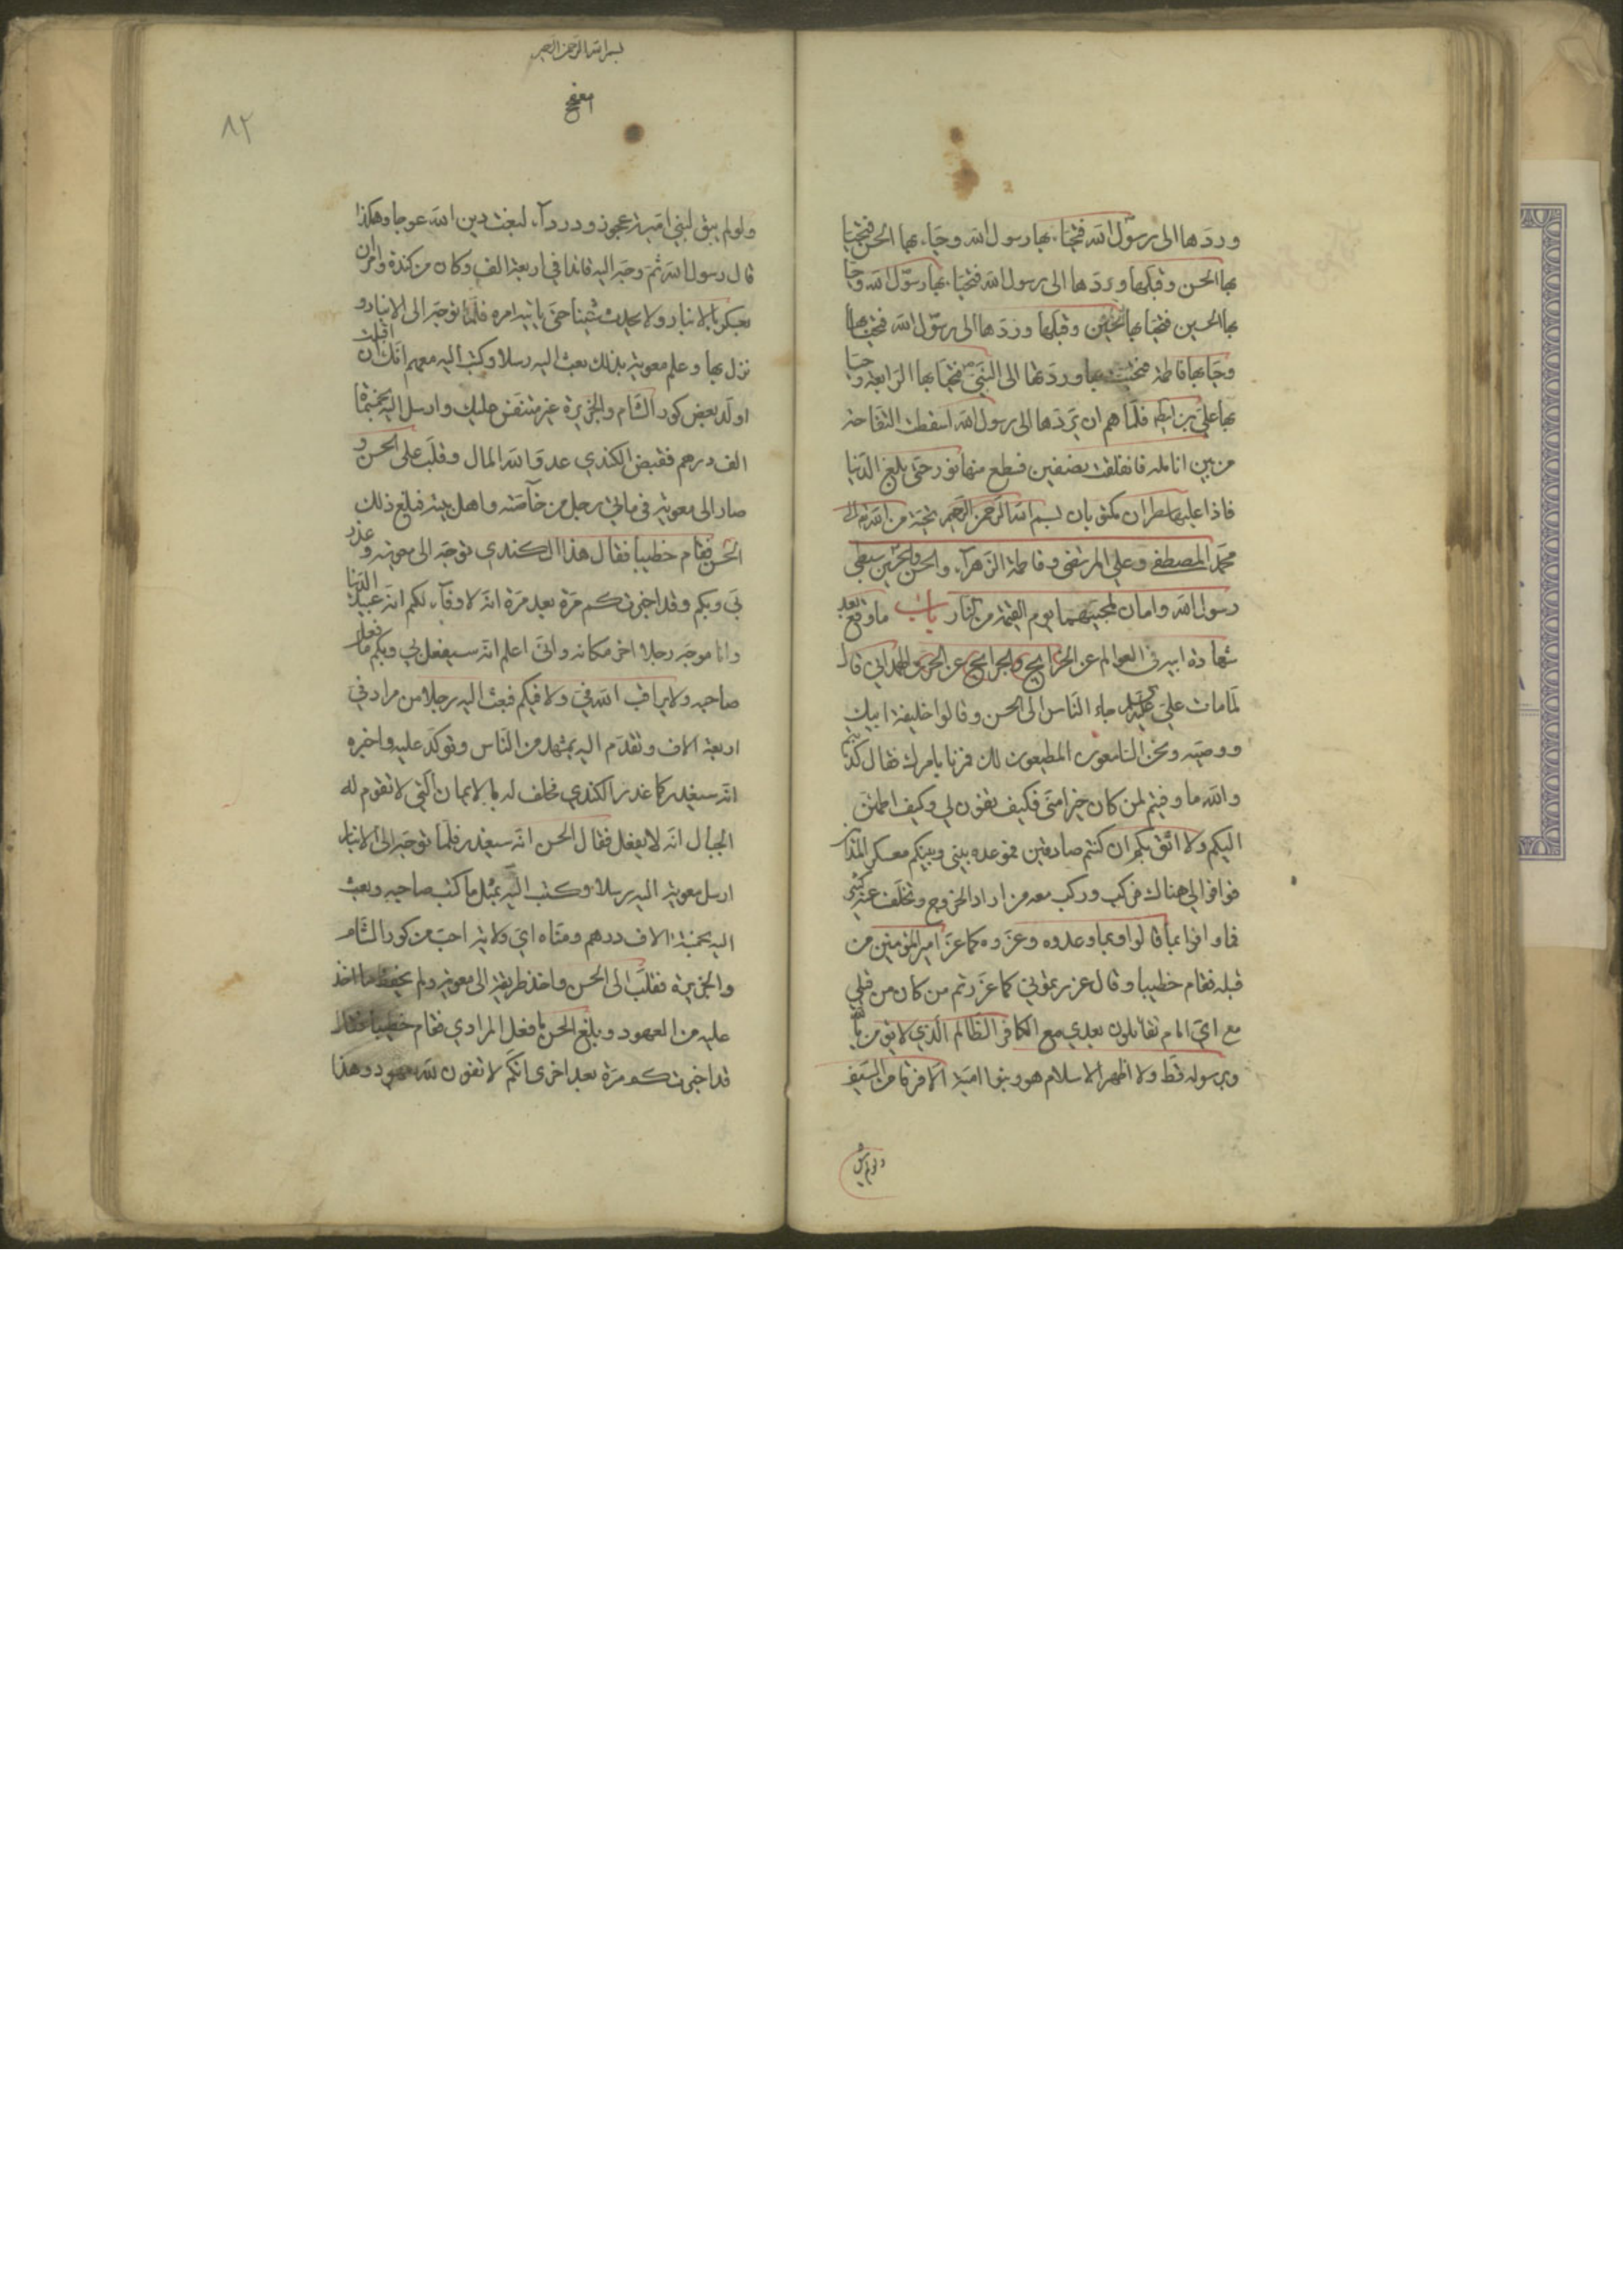 وردها الى رسول الله فتحيا بها رسول الله وحيا بها الحسن فتحيا
بها الحسن وقبلها وردها الى رسول الله فتحيا بها رسول الله وحيا
بها الحسين فتحيا بها الحسين وقبلها وردها الى رسول الله فتحيا بها
وحيا بها فاطمة فتحيت بها وردتها الى النبي فتحيا بها الرابعة وحيا
بها علي بن ابيطالب فلما هم ان يردها الى رسول الله اسقطت التفاحة
من بين انامله فانفلقت بنصفين فسطع منها نور حتى بلغ الدنيا
فاذا عليها سطران مكتوبان بسم الله الرحمن الرحيم تحية من الله الى
محمد المصطفى وعلي المرتضى وفاطمة الزهراء والحسن والحسين سبطي
رسول الله وامان لمحبيهما يوم القيمة من النار باب ما وقع بعد
شهادة ابيه في العوالم عن الخرايج والجرايح عن الحرث الهمداني قال
لما مات علي جاء الناس الى الحسن وقالوا خليفة ابيك
ووصيه ونحن السامعون المطيعون لك فمرنا بامرك فقال كذبتم
والله ما وفيتم لمن كان خيرا مني فكيف تفون لي وكيف اطمئن
اليكم ولا اثق بكم ان كنتم صادقين فموعده بيني وبينكم معسكر المداين
فوافوا الي هناك فركب وركب معه من اراد الخروج وتخلف عنه كثير
فما وافوا بما قالوا وبما وعدوه وغروه كما غروا امير المؤمنين من
قبله فقام خطيبا وقال غررتموني كما غررتم من كان من قبلي
مع اي امام تقاتلون بعدي مع الكافر الظالم الذي لا يؤمن بالله
وبرسوله قط ولا اظهر الاسلام هو وبنوا امية الا فرقا من السيف
ولو لم يبق
بسم الله الرحمن الرحيم
٨٢
ولو لم يبق لبني امية الا عجوز درداء لبغت دين الله عوجا وهكذا
قال رسول الله ثم وجه اليه قائدا في اربعة الف وكان من كندة وامره ان
يعسكر بالانبار ولا يحدث شيئا حتى ياتيه امره فلما توجه الى الانبار و
نزل بها وعلم معوية بذلك بعث اليه رسلا وكتب اليه معهم انك ان اقبلت
اولك بعض كور الشام والجزيرة غير منفس عليك وارسل اليه بخمسمائة
الف درهم فقبض الكندي عدو الله المال وقلب على الحسن و
صار الى معوية في مائتي رجل من خاصته واهل بيته فبلغ ذلك
الحسن فقام خطيبا فقال هذا الكندي توجه الى معوية وغدر
بي وبكم وقد اخبرتكم مرة بعد مرة انه لا وفاء لكم انتم عبيد الدنيا
وانا موجه رجلا اخر مكانه واني اعلم انه سيفعل بي وبكم ما فعل
صاحبه ولا يراقب الله في ولا فيكم فبعث اليه رجلا من مراد في
اربعة الاف وتقدم اليه بمشهد من الناس وتوكد عليه واخبره
انه سيغدر كما غدر الكندي فحلف له بالايمان التي لا تقوم لها
الجبال انه لا يفعل فقال الحسن انه سيغدر فلما توجه الى الانبار
ارسل معوية اليه رسلا وكتب اليه بمثل ما كتب صاحبه وبعث
اليه بخمسة الاف درهم ومناه اي ولاية احب من كور الشام
والجزيرة فقلب الى الحسن واخذ طريقه الى معوية ولم يحفظ ما اخذ
عليه من العهود وبلغ الحسن ما فعل المرادي فقام خطيبا فقال
قد اخبرتكم مرة بعد اخرى انكم لا تفون لله بعهود وهذا